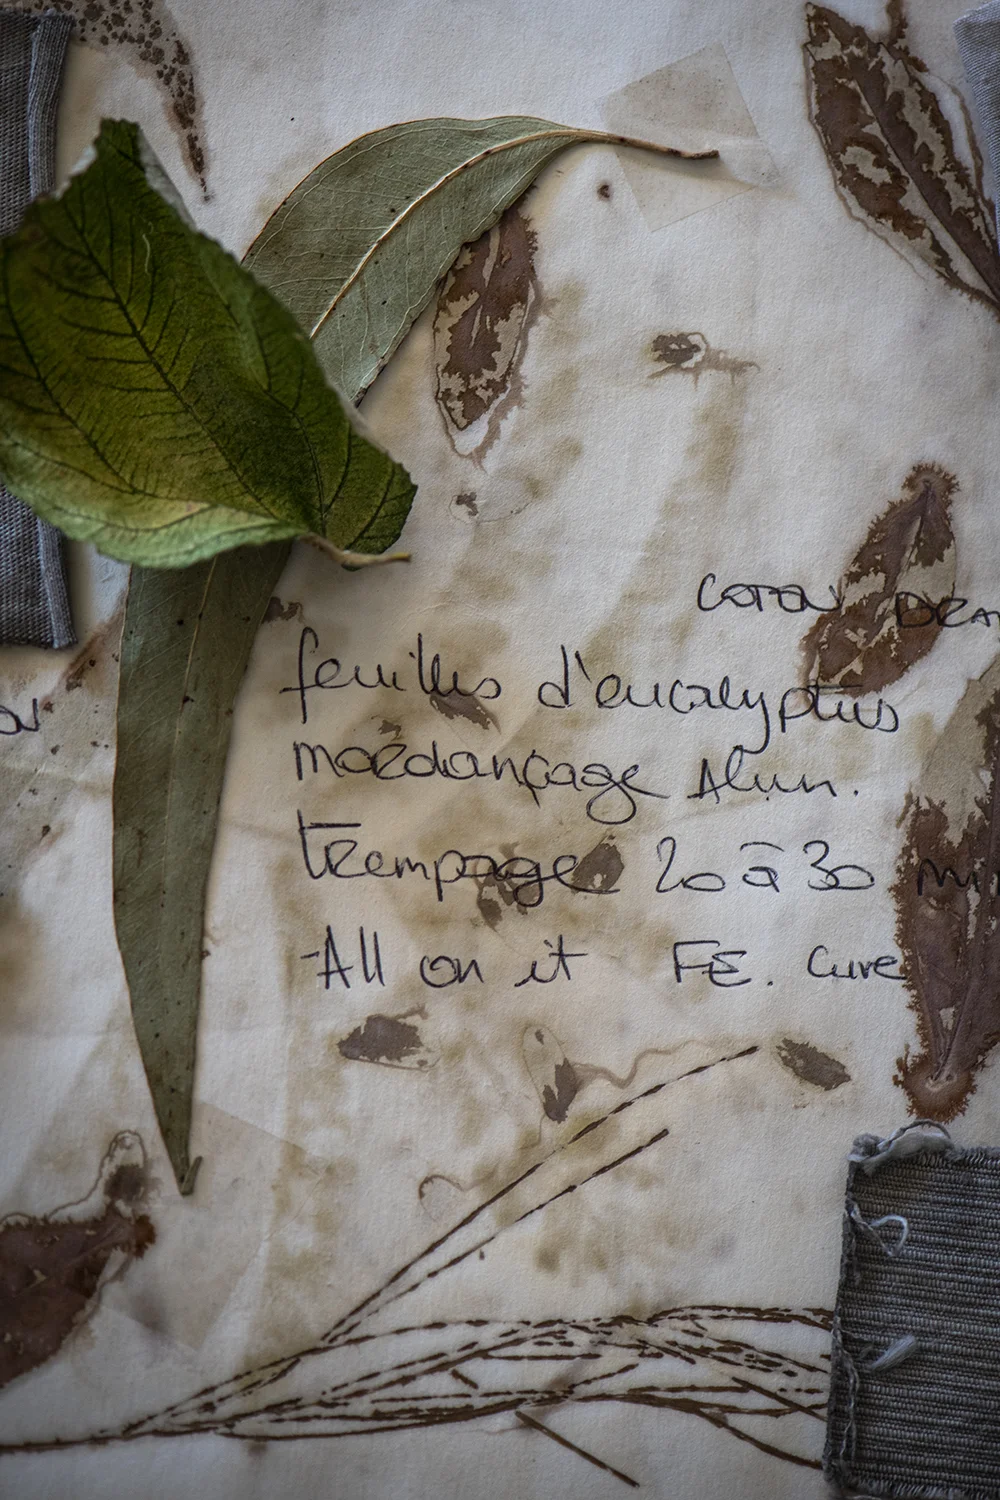 COTON DRA
feuilles d'eucalyptus
ON
mordançage Alun.
Trempage 20 à 30 min
-All on it FE. Cuve